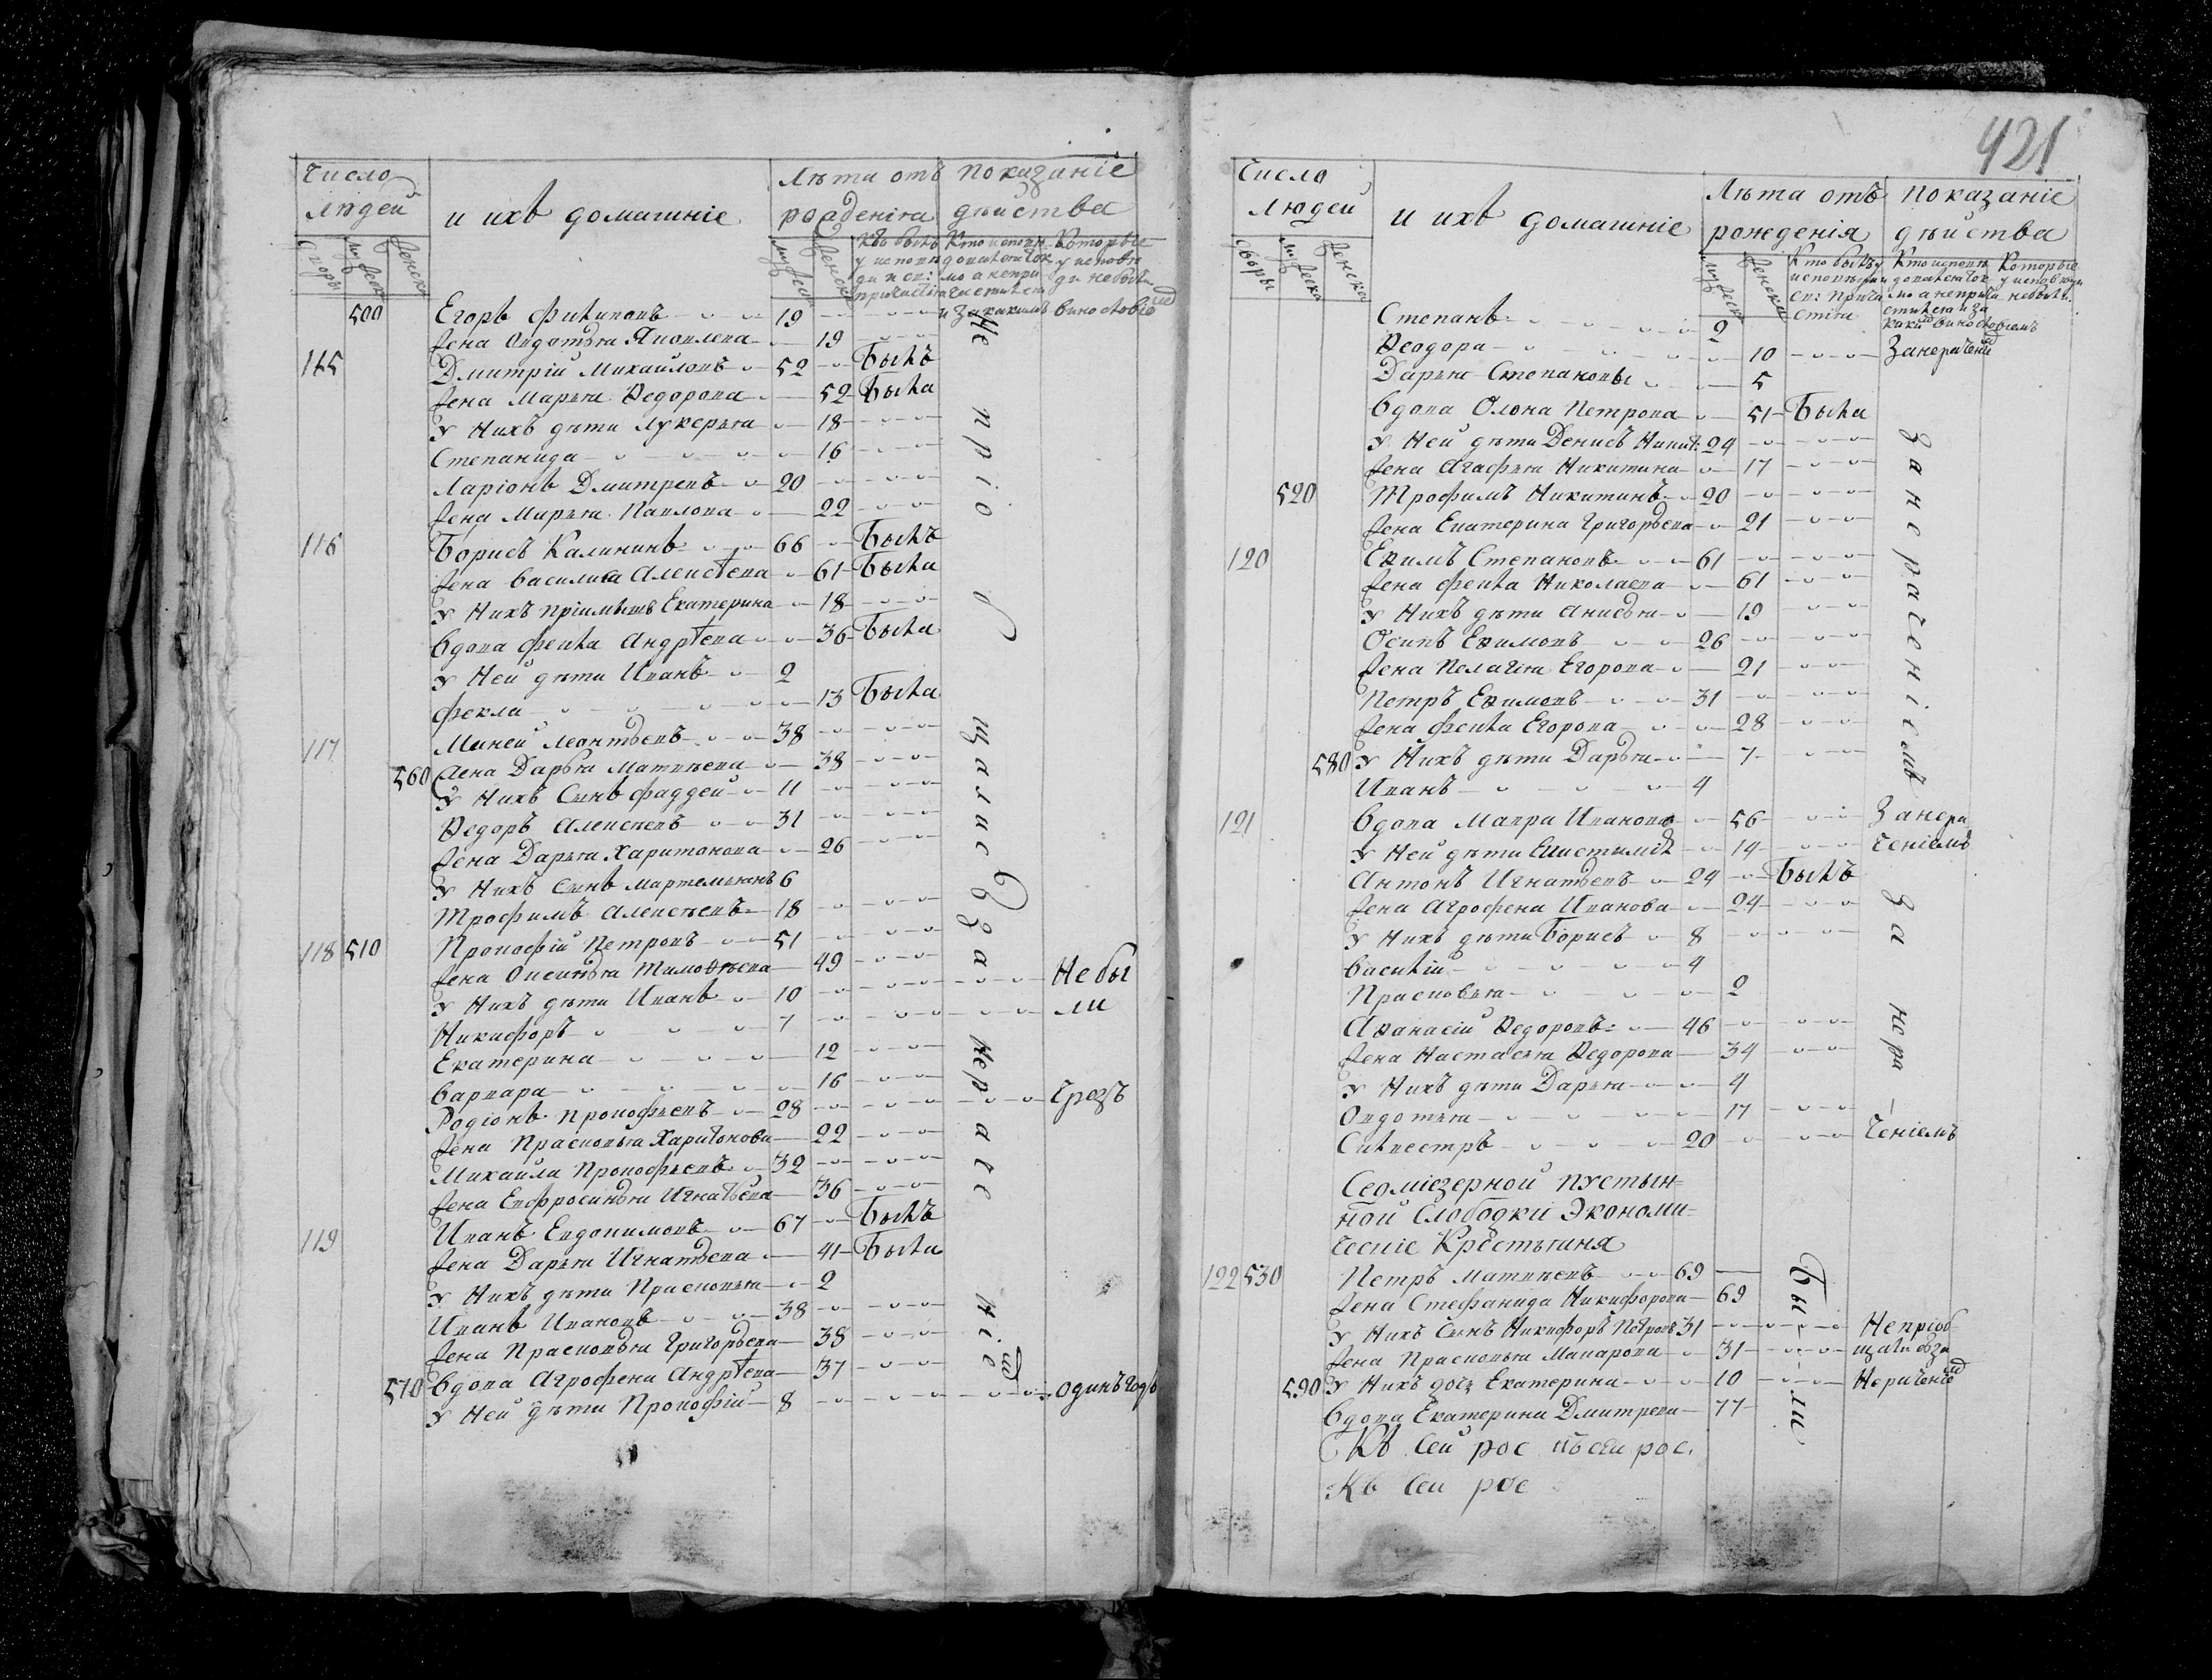 Число Людей
и ихъ домашніе
Лѣта отъ рожденія
показаніе дѣйства
дворы
мужеска
женска
мужеска
женска
Кто былъ у исповѣди и св: причастія
Кто исповѣдовался токмо а не причастился и за какимъ винословіемъ
Которые у исповѣди не были
500 Егоръ Филиповъ 19
Жена Овдотья Яковлева 19
115 Дмитрій Михайловъ 52 Былъ
Жена Марья Ѳедорова 52 Была
У Нихъ дѣти Лукерья 18
Степанида 16
Ларіонъ Дмитревъ 20
Жена Марья Павлова 22
116 Борисъ Калининъ 66 Былъ
Жена Василиса Алексѣева 61 Была
У Нихъ пріимышъ Екатерина 18
Вдова Фекла Андрѣева 36 Была
У Ней дѣти Иванъ 2
Фекла 13 Была
117 Миней Леонтьевъ 38
560 Жена Дарья Матвѣева 38
У Нихъ Сынъ Фаддей 11
Ѳедоръ Алексѣевъ 31
Жена Дарья Харитонова 26
У Нихъ Сынъ Мартемьянъ 6
Трофимъ Алексѣевъ 18
118 510 Прокофій Петровъ 51
Жена Оксинья Тимоѳѣева 49
У Нихъ дѣти Иванъ 10 Небы
Никифоръ 7 ли
Екатерина 12
Варвара 16
Родіонъ Прокофьевъ 28 Чрезъ
Жена Прасковья Харитонова 22
Михаила Прокофьевъ 32
Жена Евфросинья Игнатьева 36
119 Иванъ Евдокимовъ 67 Былъ
Жена Дарья Игнатьева 41 Была
У Нихъ дѣти Прасковья 2
Иванъ Ивановъ 38
Жена Прасковья Григорьева 38
570 Вдова Агрофена Андрѣева 37
У Ней дѣти Прокофій 8 одинъ годъ
Не пріобщались за нераченіемъ
421
Число Людей
и ихъ домашніе
Лѣта отъ рожденія
показаніе дѣйства
дворы
мужеска
женска
мужеска
женска
Кто былъ у исповѣди и св: причастія
Кто исповѣдовался токмо а не причастился и за какимъ винословіемъ
Которые у исповѣди небыли
Степанъ 2
Ѳеодора 10 Занераченіемъ
Дарья Степановы 5
Вдова Олона Петрова 51 Была
У Ней дѣти Денисъ Никит: 24
Жена Агафья Никитина 17
520 Трофимъ Никитинъ 20
Жена Екатерина Григорьева 21
120 Еѳимъ Степановъ 61
Жена Фекла Николаева 61
У Нихъ дѣти Анисья 19
Осипъ Еѳимовъ 26
Жена Пелагія Егорова 21
Петръ Еѳимовъ 31
Жена Фекла Егорова 28
580 У Нихъ дѣти Дарья 7
Иванъ 4
занераченіемъ
121 Вдова Мавра Иванова 56 Занера
У Ней дѣти 14 ченіемъ
Антонъ Игнатьевъ 24 Былъ
Жена Агрофена Иванова 24
У Нихъ дѣти Борисъ 8
Василій 4
Прасковья 2
Аѳанасій Ѳедоровъ 46
Жена Настасья Ѳедорова 34
У Нихъ дѣти Дарья 4
Овдотья 17
Силвестръ 20
за нера-ченіемъ
Седміезерной пустын=
ной Слободки Экономи-
ческіе Крестьяня
122 530 Петръ Матвѣевъ 69
Жена Стефанида Никифорова 69
У Нихъ Сынъ Никифоръ Петровъ 31 Непріоб
Жена Прасковья Макарова 31 щались за
590 У Нихъ дочь Екатерина 10 Нераченіемъ
Вдова Екатерина Дмитрева 77
Были
Къ Сеи рос къ сеи рос.
Къ Сеи рос